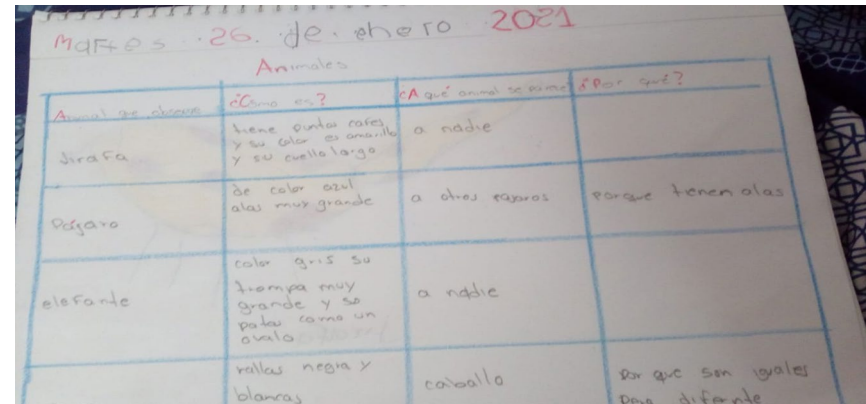 Martes 26. de. enero 2021
Animales
Animal que observe
¿Cómo es?
¿A qué animal se parece
¿Por qué?
Jirafa
tiene puntos cafes
y su color es amarillo
y su cuello largo
a nadie
Págaro
de color azul
alas muy grande
a otros pajaros
porque tienen alas
elefante
color gris su
trompa muy
grande y so
patas como un
ovalo
a nadie
rallas negra y
blancas
caballo
por que son iguales
pero difernte